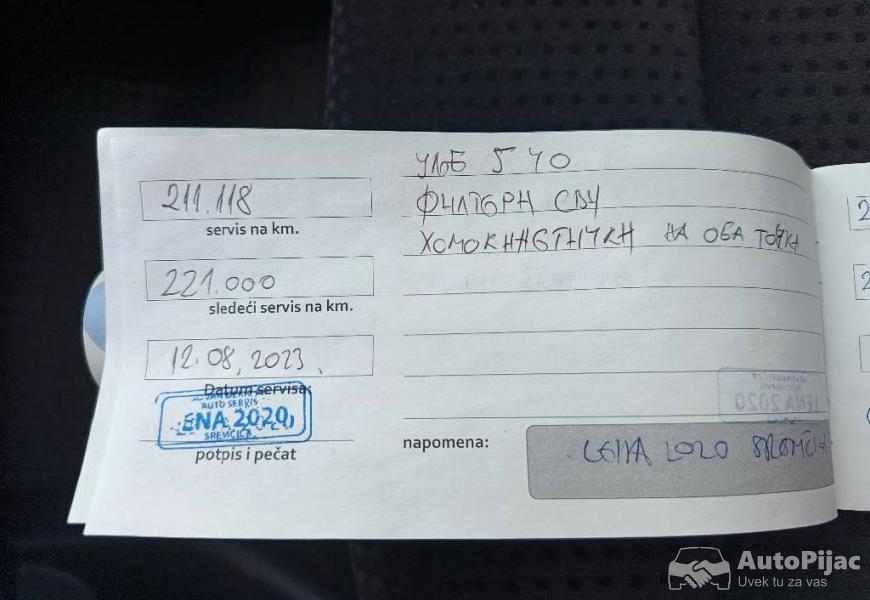 211.118
servis na km.
221.000
sledeći servis na km.
12.08.2023.
Datum servisa:
AUTO SERVIS
ENA 2020
SREMČICA
potpis i pečat
УЛЈЕ 5 40
ФИЛТЕРИ СВИ
ХОМОКИНЕТИЧКИ НА ОБА ТОЧКА
napomena:
2020
AutoPijac
Uvek tu za vas